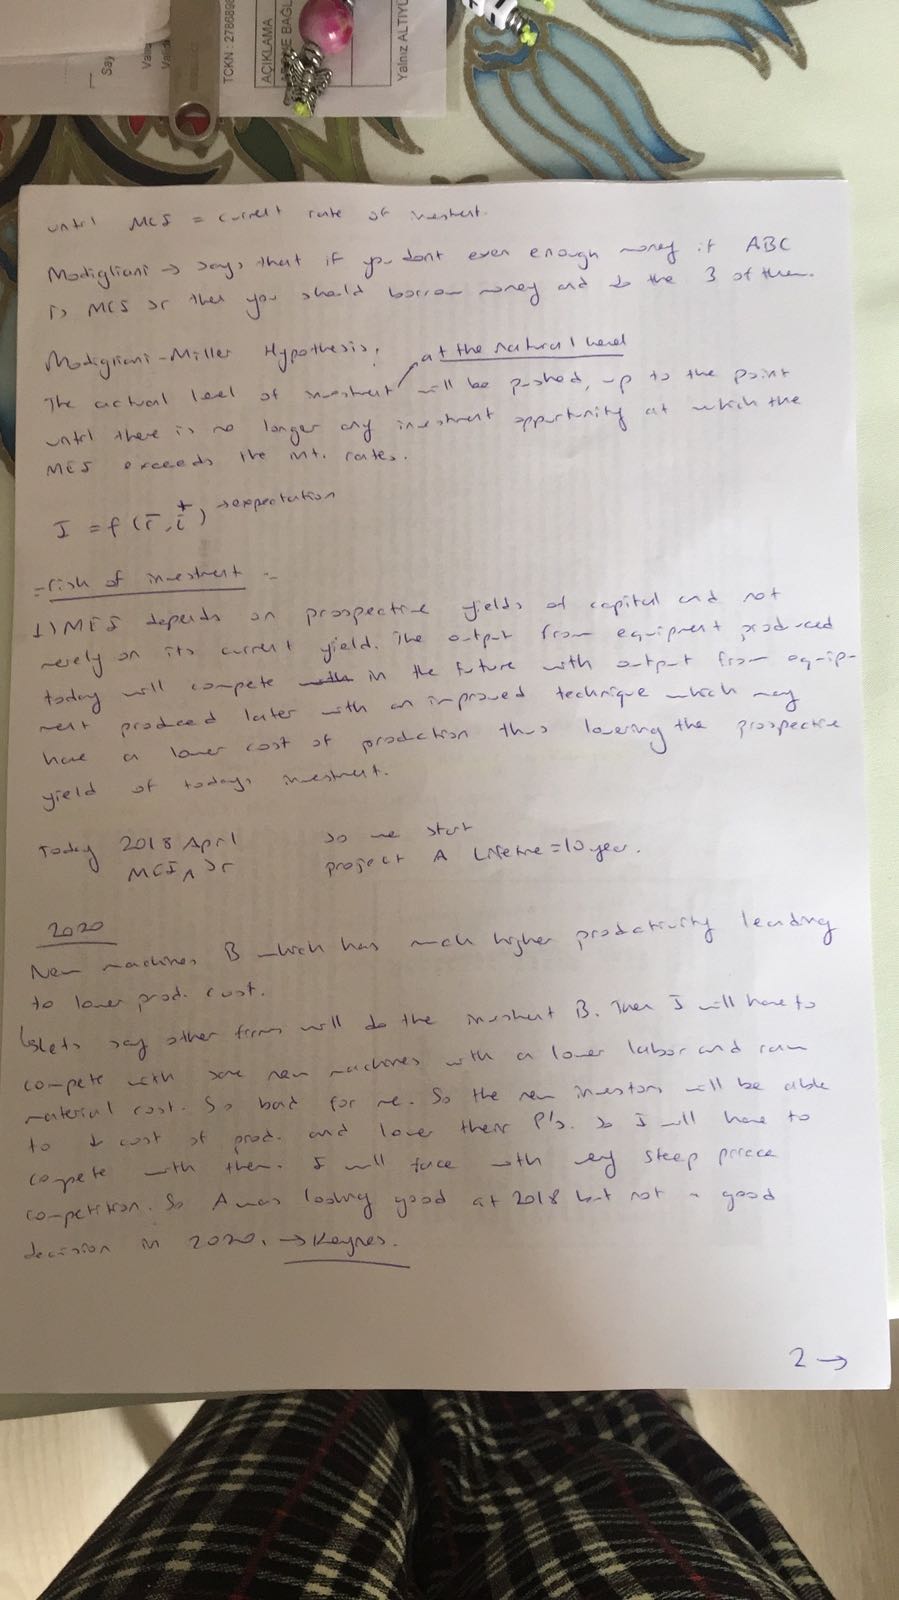 Say
TCKN : 2786898
AÇIKLAMA
Yalnız ALTIYÜ
until MCI = current rate of investment.
Modigliani → says that if you dont even enough money if ABC
is MCI >r then you should borrow money and do the 3 of them.
Modigliani-Miller Hypothesis:
at the natural level
The actual level of investment will be pushed, up to the point
until there is no longer any investment opportunity at which the
MEI exceeds the int. rates.
I = f (r̄, i⁺) → expectation
= risk of investment =
1) MEI depends on prospective yields of capital and not
merely on its current yield. The output from equipment produced
today will compete in the future with output from equip-
ment produced later with an improved technique which may
have a lower cost of production thus lowering the prospective
yield of todays investment.
Today 2018 April so we start
MCI A >r project A Lifetime = 10 year.
2020
New machines B which has much higher productivity leading
to lower prod. cost.
↳ lets say other firms will do the investment B. Then I will have to
compete with some new machines with a lower labor and raw
material cost. So bad for me. So the new investors will be able
to ↓ cost of prod. and lower their P's. So I will have to
compete with them. I will face with very steep price
competition. So A was looking good at 2018 but not a good
decision in 2020. → Keynes.
2 →